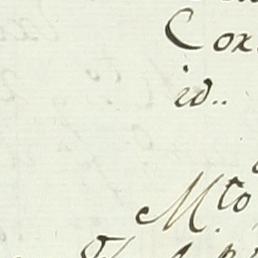 Cox.
id..
Mto